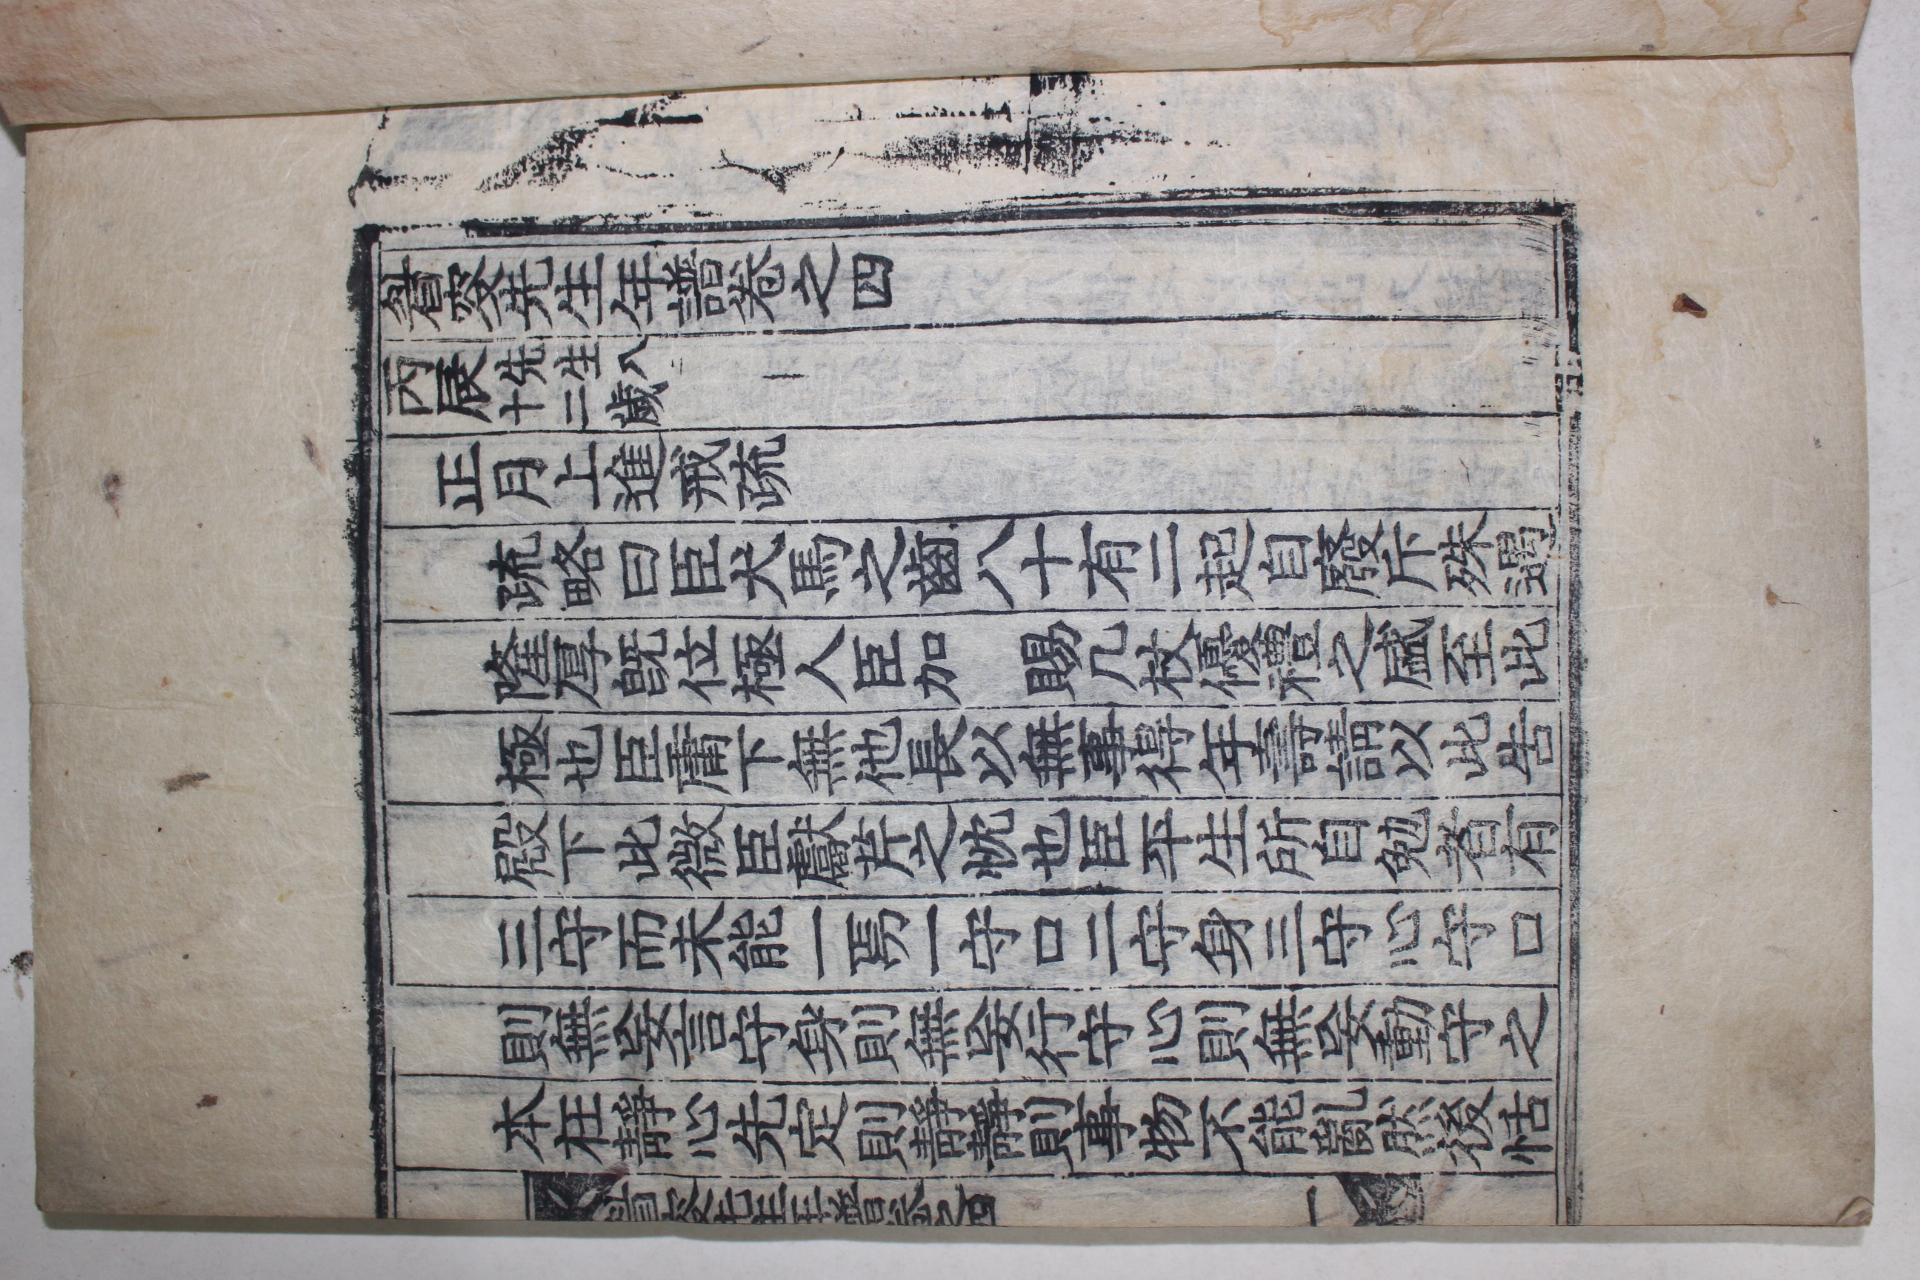 眉叟先生年譜卷之四
丙辰先生八十二歲
正月上進戒疏
疏略曰臣犬馬之齒八十有二起自廢斥殊遇
隆厚旣位極人臣加 賜几杖優禮之盛至此
極也臣庸下無他長以無事得年壽請以此告
殿下此微臣獻芹之忱也臣平生所自勉者有
三守而未能一焉一守口二守身三守心守口
則無妄言守身則無妄行守心則無妄動守之
本在靜心先定則靜靜則事物不能亂然後恬
眉叟先生年譜卷之四
一